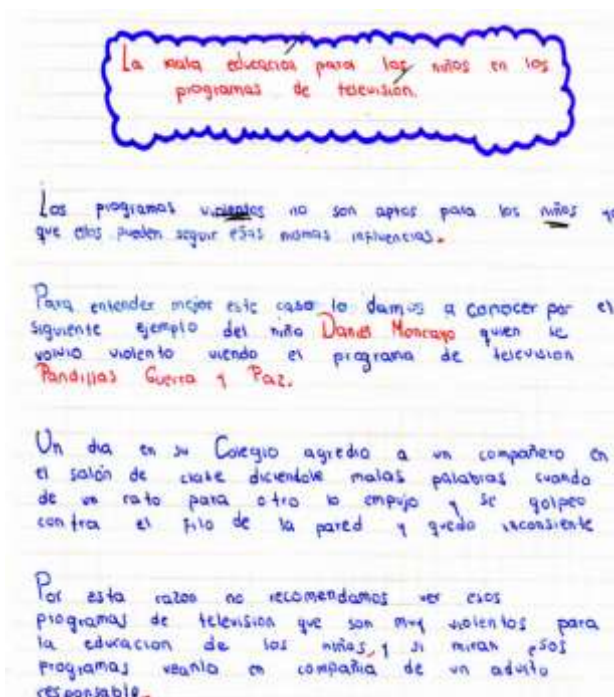 La mala educacion para los niños en los
programas de televisión.
Los programas violentos no son aptos para los niños ya
que ellos pueden seguir esas mismas influencias.
Para entender mejor este caso lo damos a conocer por el
siguiente ejemplo del niño Daniel Moncayo quien se
volvio violento viendo el programa de television
Pandillas Guerra y Paz.
Un dia en su Colegio agredio a un compañero en
el salón de clase diciendole malas palabras cuando
de un rato para otro lo empujo y se golpeo
contra el filo de la pared y quedo inconsiente
Por esta razon no recomendamos ver esos
programas de television que son muy violentos para
la educacion de los niños, y si miran esos
programas veanlo en compañia de un adulto
responsable.